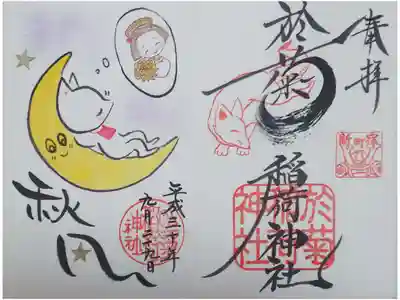 奉拝
於菊
稲荷神社
於菊
神社
平成三十年
九月二十九日
秋風